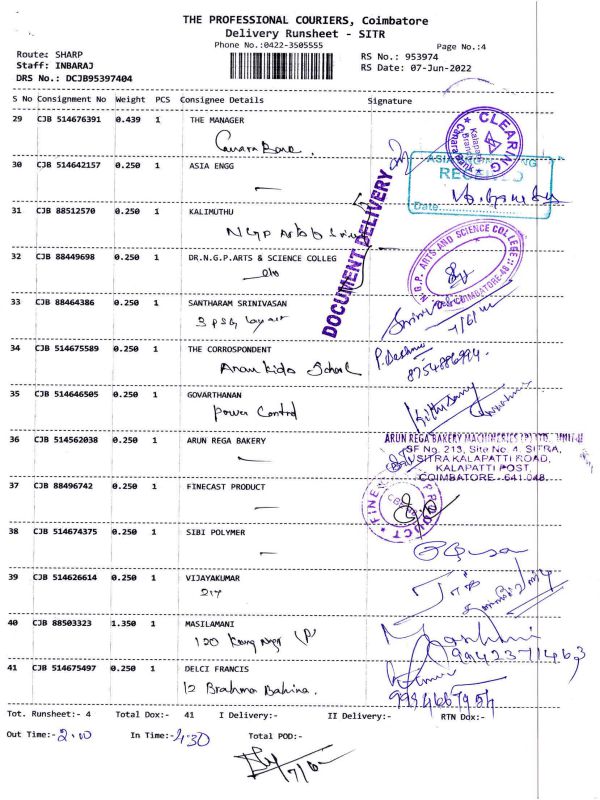 THE PROFESSIONAL COURIERS, Coimbatore
Delivery Runsheet - SITR
Phone No.:0422-3505555 Page No.:4
Route: SHARP RS No.: 953974
Staff: INBARAJ RS Date: 07-Jun-2022
DRS No.: DCJB95397404
S No Consignment No Weight PCS Consignee Details Signature
29 CJB 514676391 0.439 1 THE MANAGER
Canara Bank.
CLEARING
Kalapatti Branch
Canara Bank
30 CJB 514642157 0.250 1 ASIA ENGG
RECEIVED
Date
DOCUMENT DELIVERY
31 CJB 88512570 0.250 1 KALIMUTHU
NGP Arts
32 CJB 88449698 0.250 1 DR.N.G.P.ARTS & SCIENCE COLLEG
N.G.P. ARTS AND SCIENCE COLLEGE
COIMBATORE-48
33 CJB 88464386 0.250 1 SANTHARAM SRINIVASAN
3 PSG layout
34 CJB 514675589 0.250 1 THE CORROSPONDENT
Kids School
8754886994
35 CJB 514646505 0.250 1 GOVARTHANAN
Power Control
36 CJB 514562038 0.250 1 ARUN REGA BAKERY
ARUN REGA BAKERY MACHINERIES (P) LTD.
SF No. 213, Site No. 4, SITRA,
SITRA KALAPATTI ROAD,
KALAPATTI POST,
COIMBATORE - 641 048.
37 CJB 88496742 0.250 1 FINECAST PRODUCT
PRODUCT
38 CJB 514674375 0.250 1 SIBI POLYMER
39 CJB 514626614 0.250 1 VIJAYAKUMAR
217
40 CJB 88503323 1.350 1 MASILAMANI
120
9942371463
41 CJB 514675497 0.250 1 DELCI FRANCIS
12 Brahma
9994667954
Tot. Runsheet:- 4 Total Dox:- 41 I Delivery:- II Delivery:- RTN Dox:-
Out Time:- 2.00 In Time:- 4.30 Total POD:-